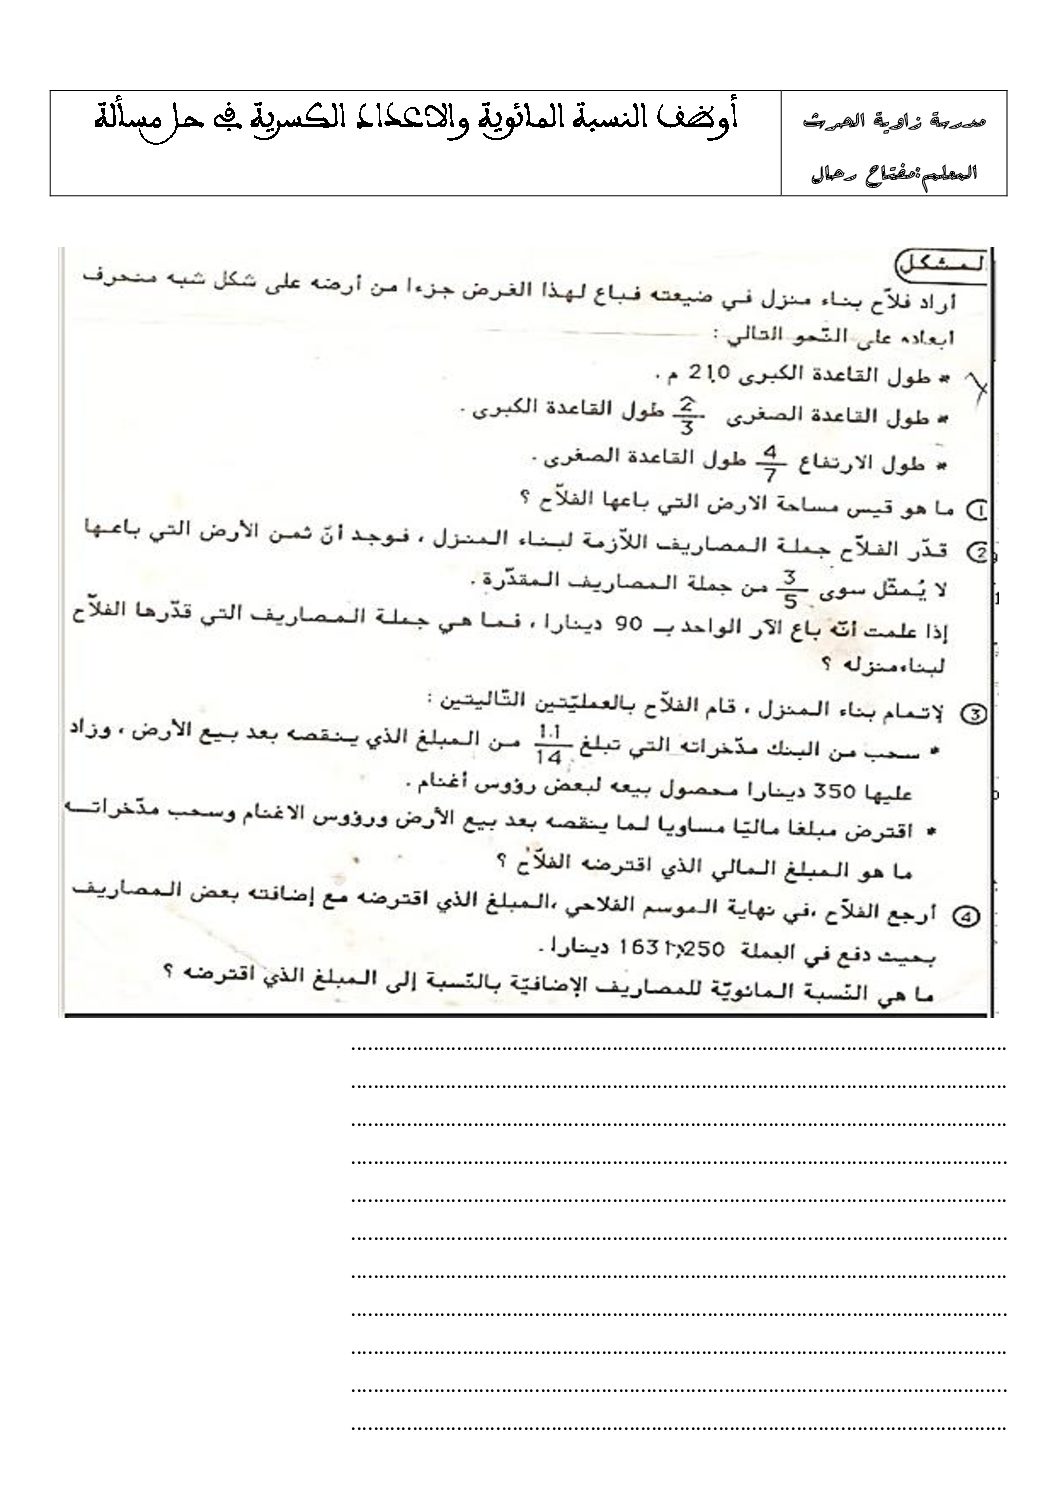 مدرسة زاوية الحرث
المعلم:مفتاح رحال
أوظف النسبة المائوية والاعداد الكسرية في حل مسألة
لمشكل
أراد فلاّح بناء منزل في ضيعته فباع لهذا الغرض جزءا من أرضه على شكل شبه منحرف
ابعاده على النّحو التالي :
* طول القاعدة الكبرى 210 م .
* طول القاعدة الصغرى 2/3 طول القاعدة الكبرى .
* طول الارتفاع 4/7 طول القاعدة الصغرى .
① ما هو قيس مساحة الارض التي باعها الفلاّح ؟
② قدّر الفلاّح جملة المصاريف اللاّزمة لبناء المنزل ، فوجد أنّ ثمن الأرض التي باعها
لا يُمثّل سوى 3/5 من جملة المصاريف المقدّرة .
إذا علمت أنّه باع الآر الواحد بـ 90 دينارا ، فما هي جملة المصاريف التي قدّرها الفلاّح
لبناء منزله ؟
③ لاتمام بناء المنزل ، قام الفلاّح بالعمليّتين التّاليتين :
* سحب من البنك مدّخراته التي تبلغ 11/14 من المبلغ الذي ينقصه بعد بيع الأرض ، وزاد
عليها 350 دينارا محصول بيعه لبعض رؤوس أغنام .
* اقترض مبلغا ماليّا مساويا لما ينقصه بعد بيع الأرض ورؤوس الاغنام وسحب مدّخراتـه
ما هو المبلغ المالي الذي اقترضه الفلاّح ؟
④ أرجع الفلاّح ،في نهاية الموسم الفلاحي ،المبلغ الذي اقترضه مع إضافته بعض المصاريف
بحيث دفع في الجملة 1631,250 دينارا .
ما هي النّسبة المائويّة للمصاريف الإضافيّة بالنّسبة إلى المبلغ الذي اقترضه ؟